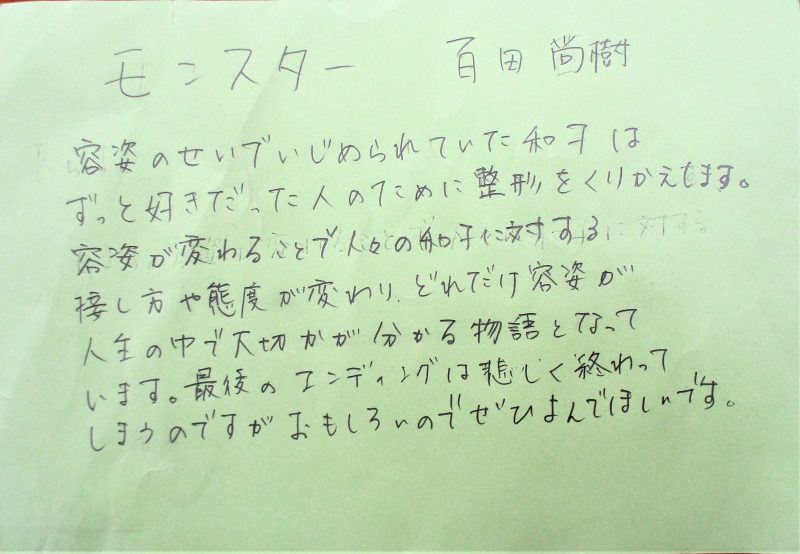 モンスター 百田尚樹
容姿のせいでいじめられていた和子は
ずっと好きだった人のために整形をくりかえします。
容姿が変わることで人々の和子に対する
接し方や態度が変わり、どれだけ容姿が
人生の中で大切かが分かる物語となって
います。最後のエンディングは悲しく終わって
しまうのですがおもしろいのでぜひよんでほしいです。